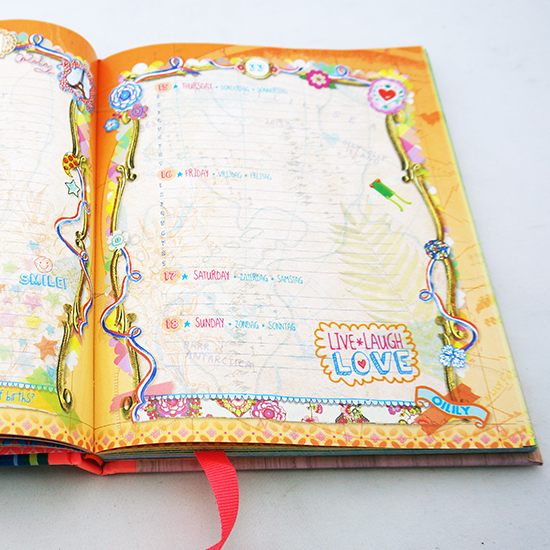 SMILE!
of births?
33
15 ★ THURSDAY • DONDERDAG • DONNERSTAG
16 ★ FRIDAY • VRIJDAG • FREITAG
17 ★ SATURDAY • ZATERDAG • SAMSTAG
18 ★ SUNDAY • ZONDAG • SONNTAG
ANTARCTICA
LIVE*LAUGH
LOVE
OILILY